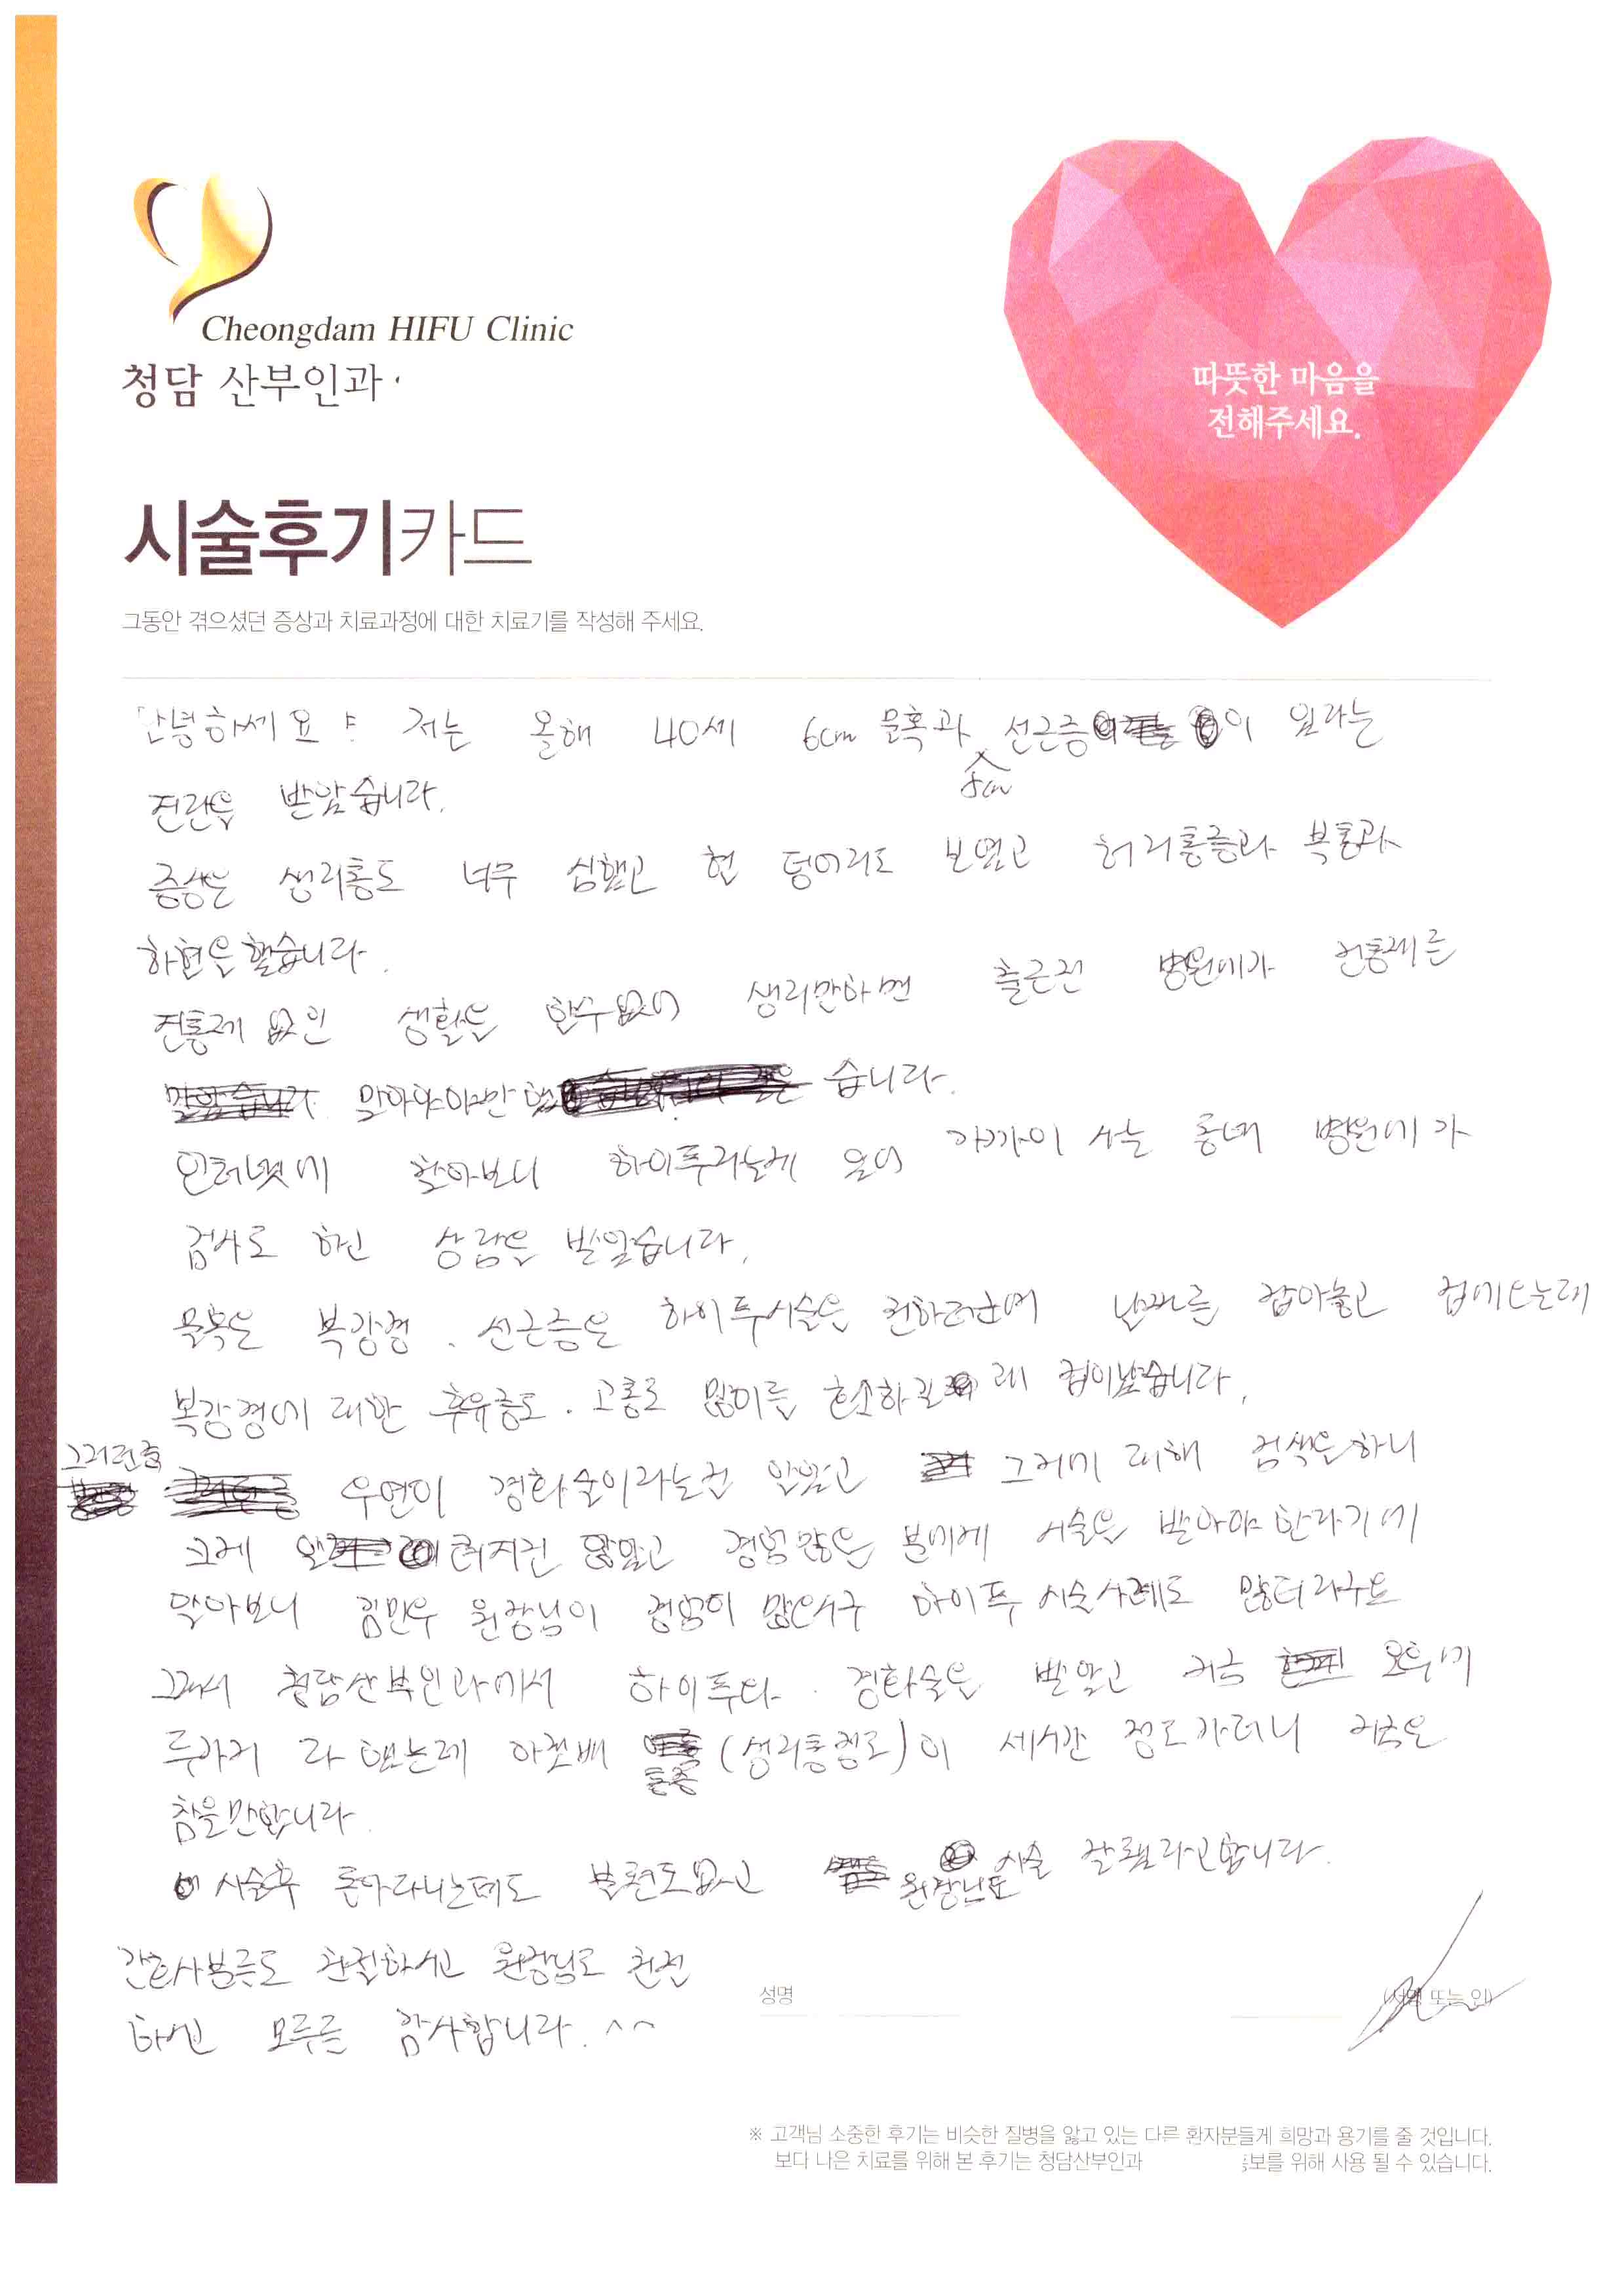 Cheongdam HIFU Clinic
청담 산부인과
따뜻한 마음을
전해주세요.
시술후기카드
그동안 겪으셨던 증상과 치료과정에 대한 치료기를 작성해 주세요.
안녕하세요 저는 올해 40세 6cm 물혹과 선근증이 있다는
진단을 받았습니다.
증상은 생리통도 너무 심했고 혈 덩어리도 보였고 허리통증과 복통과
하혈을 했습니다.
진통제 없인 생활을 할수없어 생리만하면 출근전 병원에가 진통제를
맞아야야만 했습니다.
인터넷에 찾아보니 하이푸라는게 있어 가까이 사는 동네 병원에가
검사도 하고 상담을 받았습니다.
물혹은 복강경. 선근증은 하이푸시술을 권하더군여 날짜를 잡아놓고 집에오는데
복강경에 대한 후유증도. 고통도 많이들 호소하길래 겁이났습니다.
그러던중 우연이 경화술이라는걸 알았고 그거에 대해 검색을하니
그게 알려지진 않았고 경험많은 분에게 시술을 받아야 한다기에
알아보니 김민우 원장님이 경험이 많으시구 하이푸 시술사례도 많터라구요
그래서 청담산부인과에서 하이푸다. 경화술을 받았고 지금 오후에
두가지 다 했는데 아랫배 통증(생리통정도)이 세시간 정도가더니 지금은
참을만합니다.
시술후 돌아다니는데도 불편도없고 원장님도 시술 잘됐다고합니다.
간호사분들도 친절하시고 원장님도 친절
하신 모두들 감사합니다. ^^
성명
(서명 또는 인)
※ 고객님 소중한 후기는 비슷한 질병을 앓고 있는 다른 환자분들게 희망과 용기를 줄 것입니다.
보다 나은 치료를 위해 본 후기는 청담산부인과 홍보를 위해 사용 될 수 있습니다.